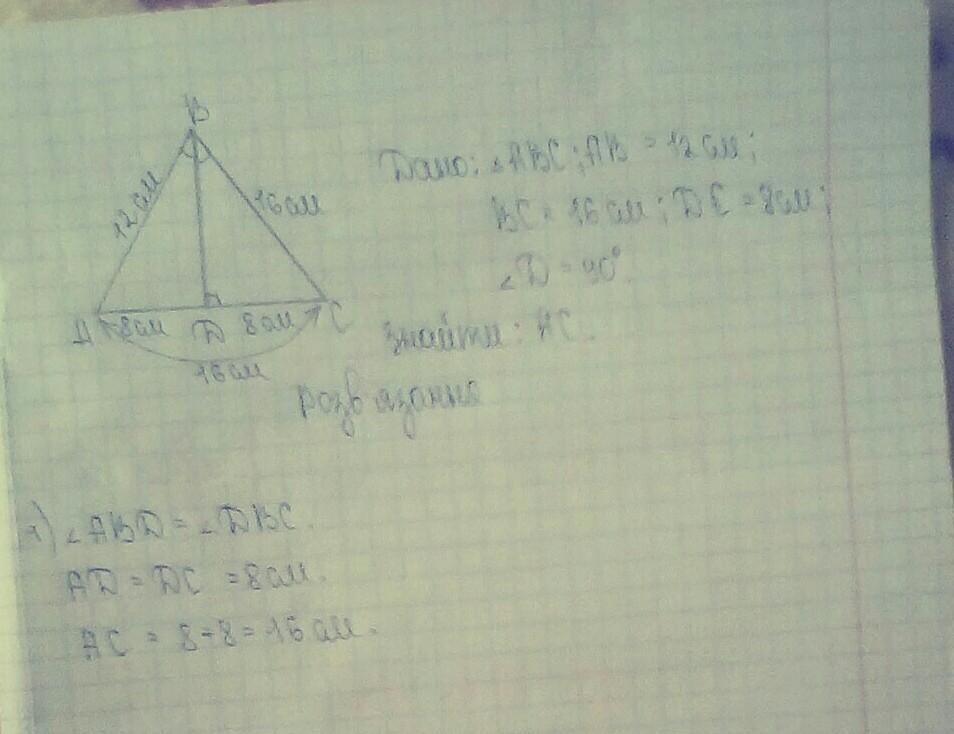 B
12 см
16 см
A 8 см D 8 см C
16 см
Дано: ∠ABC; AB = 12 см;
BC = 16 см; DC = 8 см;
∠D = 90°.
Знайти: AC.
Розв'язання
1) ∠ABD = ∠DBC.
AD = DC = 8 см.
AC = 8+8 = 16 см.